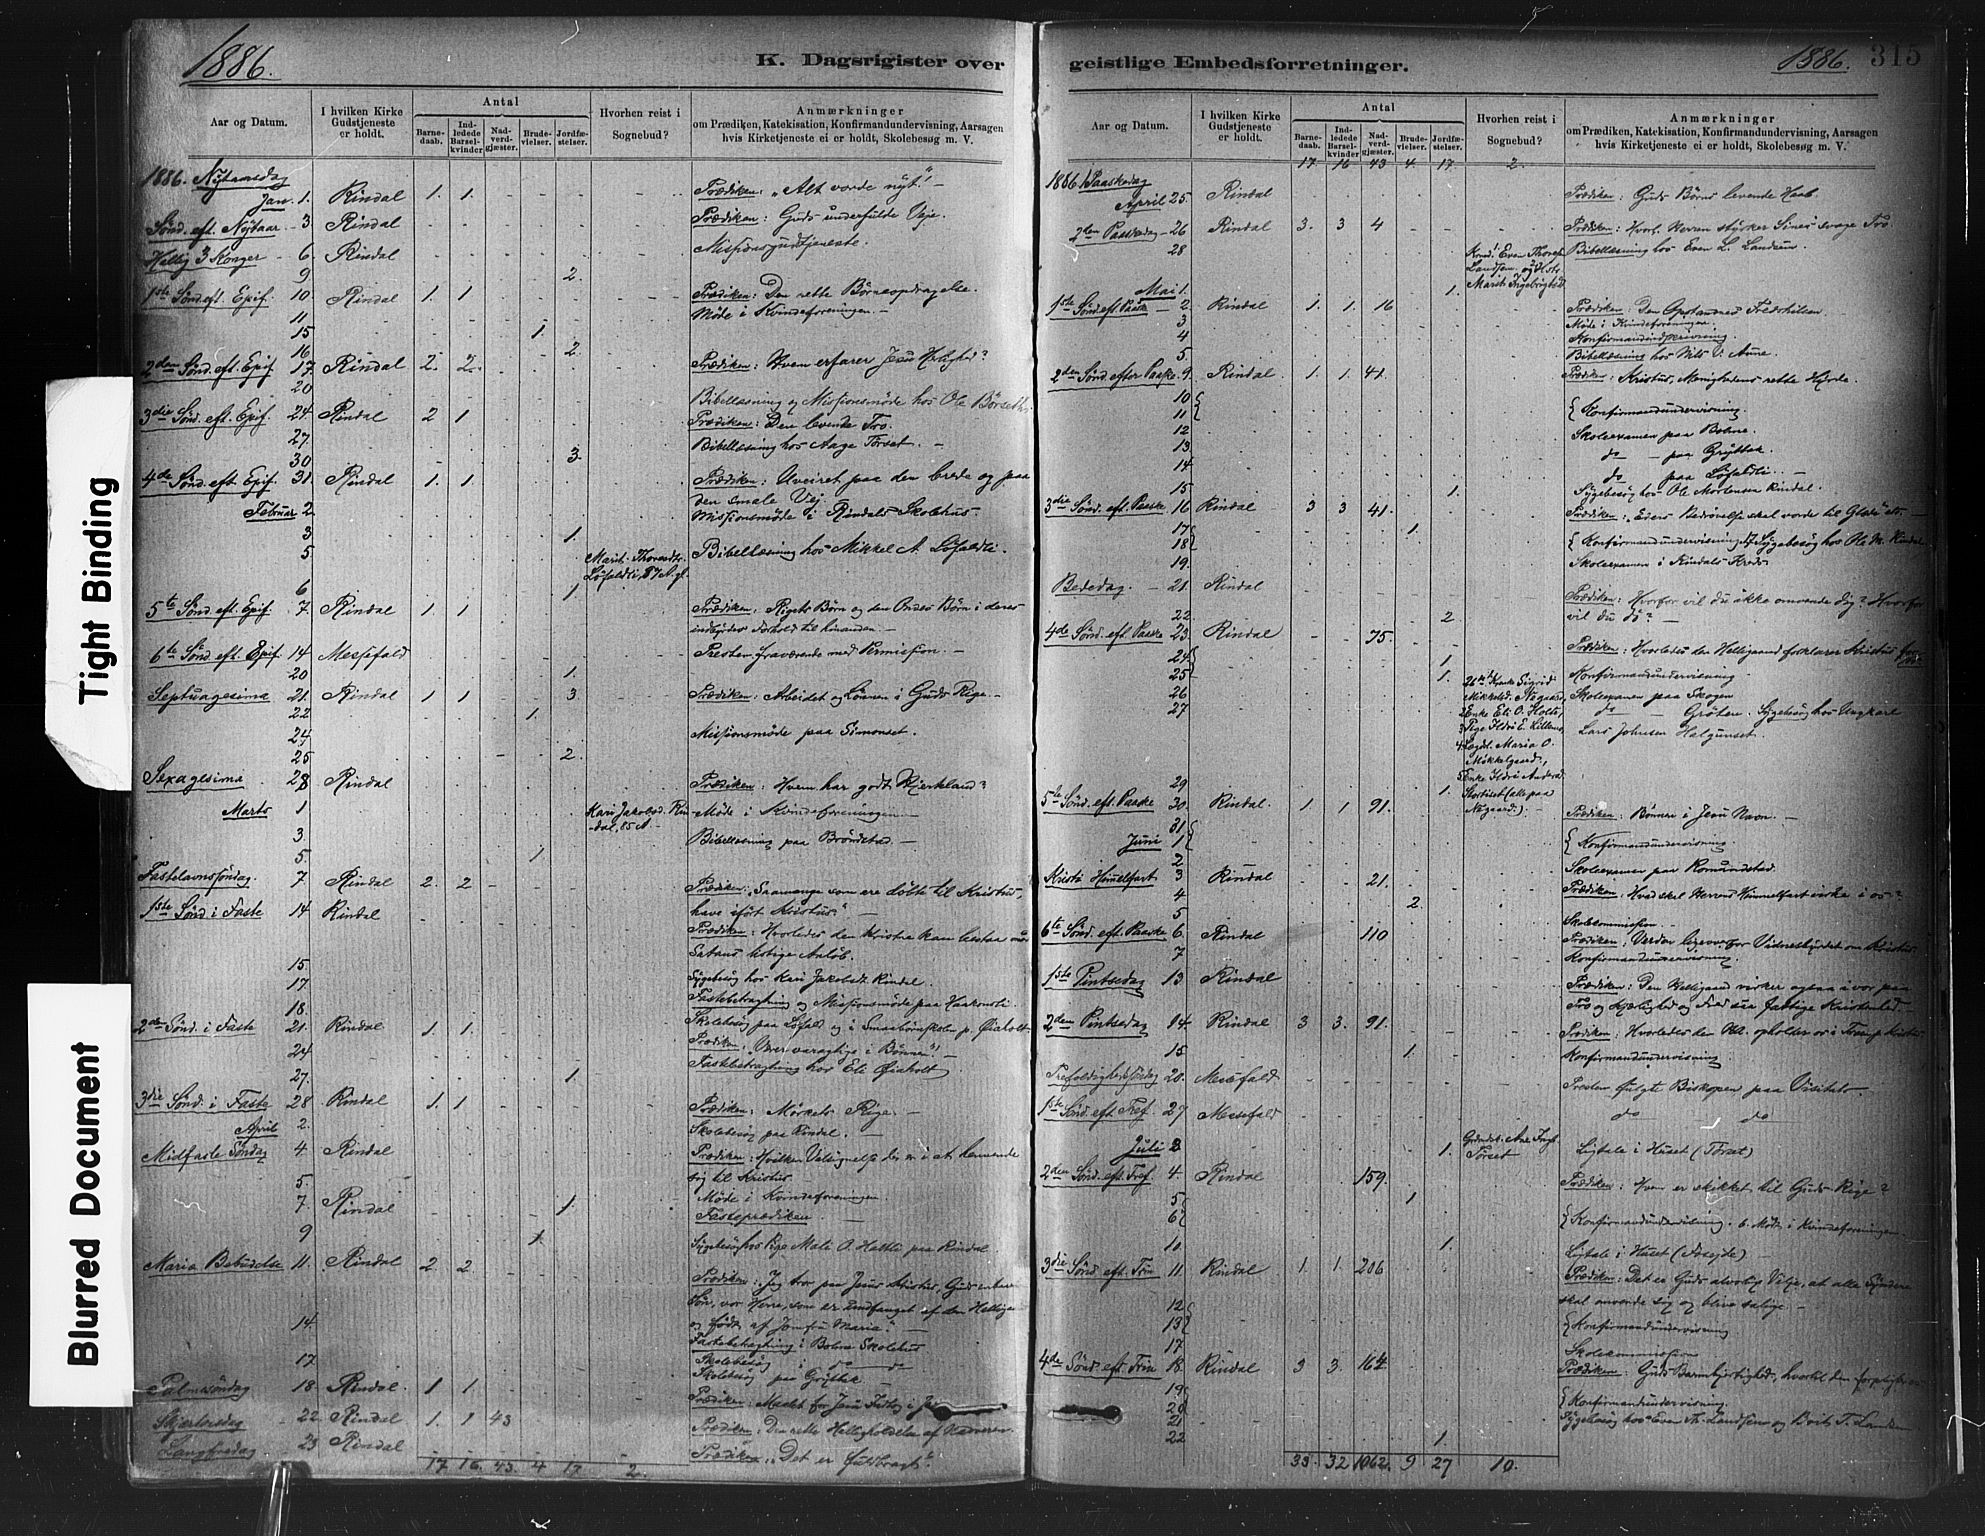 1886.
K. Dagsrigister over
Aar og Datum.
I hvilken Kirke Gudstjeneste er holdt.
Antal
Barne-daab.
Ind-ledede Barsel-kvinder
Nad-verd-gjæster.
Brude-vielser.
Jordfæ-stelser.
Hvorhen reist i Sognebud?
Anmærkninger
om Prædiken, Katekisation, Konfirmandundervisning, Aarsagen
hvis Kirketjeneste ei er holdt, Skolebesøg m. V.
1886. Nytaarsdag
Jan. 1. Rindal 1. 1. Prædiken: "Alt vorde nyt!" –
Sønd. eft. Nytaar 3 Rindal Prædiken: Guds underfulde Veje.
Hellig 3 Konger 6 Rindal Missionsgudtjeneste.
9 2.
1ste Sønd. eft. Epif. 10. Rindal 1. 1 Prædiken: Den rette Børneopdragelse.
11 Møde i Kvindeforeningen. –
15 1.
16 2.
2den Sønd. eft. Epif. 17. Rindal 2. 2. Prædiken: Hvem erfarer Jesu Herlighed?
20 Bibellæsning og Missionsmøde hos Ole Børseth.
3die Sønd. eft. Epif. 24 Rindal 2 1 Prædiken: Den levende Tro.
27. Bibellæsning hos Aage Torset. –
30 3.
4de Sønd. eft. Epif. 31 Rindal 1. 1. Prædiken: Uveiret paa den brede og paa
den smale Vej.
Februar 2 Missionsmøde i Rindals Skolehus.
3 1.
5 Marit Thoresdtr. Løfaldli, 87 A. gl. Bibellæsning hos Mikkel A. Løfaldli.
6 1
5te Sønd. eft. Epif. 7 Rindal 1 1 Prædiken: Rigets Børn og den Ondes Børn i deres
indbyrdes Forhold til hinanden. –
6te Sønd. eft. Epif. 14 Messefald Presten fraværende med Permission. –
20 1.
Septuagesima 21. Rindal 1 1 3 Prædiken: Arbeidet og Lønnen i Guds Rige. –
22 1.
24 Missionsmøde paa Simonset.
25 2.
Sexagesima 28 Rindal Prædiken: Hvem har godt Hjerteland?
Marts 1 Kari Jakobsd. Rindal, 85 A. – Møde i Kvindeforeningen –
3. Bibellæsning paa Brøndstad.
5. 1
Fastelavnssøndag. 7 Rindal 2. 2 Prædiken: "Saamange som ere døbte til Kristus,
have iført Kristus." –
1ste Sønd i Faste 14 Rindal Prædiken: Hvorledes den Kristne kan bestaa mod
Satans listige Anløb.
15. Sygebesøg hos Kari Jakobsdt. Rindal.
17 Fastebetragtning og Missionsmøde paa Haakonsli
18. Skolebesøg paa Løfald og i Smaabørnskolen p. Øiaholt
2den Sønd. i Faste 21. Rindal 1 1. Prædiken: "Værer varagtige i Bønnen!" –
24 Fastebetragtning hos Eli Øiaholt
27. 1.
3die Sønd. i Faste 28 Rindal 1. 1 Prædiken: Mørkets Rige. –
April 2. Skolebesøg paa Rindal. –
Midfaste Søndag 4 Rindal Prædiken: Hvilken Velsignelse der er i at henvende
sig til Kristus. –
5. Møde i Kvindeforeningen
7 Rindal 1 Fasteprædiken. –
9 1. Sygebesøg hos Pige Mate O. Hatle paa Rindal.
Maria Bebudelse 11. Rindal 2 2. Prædiken: Jeg tror paa Jesus Kristus, Guds enbaar
Søn, vor Herre, som er undfanget af den Hellige
og født af Jomfru Maria." –
14. Fastebetragtning i Bolme Skolehus
Skolebesøg i do do
17. Skolebesøg paa Grytbak
Palmesøndag 18 Rindal. 1 1
Skjærtorsdag 22 Rindal 1. 1 43 Prædiken: Den rette Helligholdelse af Nadveren.
Langfredag 23 Rindal Prædiken: "Det er fuldbragt."
17 16. 43. 4 17. 2.
geistlige Embedsforretninger.
1886. 315
Aar og Datum.
I hvilken Kirke Gudstjeneste er holdt.
Antal
Barne-daab.
Ind-ledede Barsel-kvinder
Nad-verd-gjæster.
Brude-vielser.
Jordfæ-stelser.
Hvorhen reist i Sognebud?
Anmærkninger
om Prædiken, Katekisation, Konfirmandundervisning, Aarsagen
hvis Kirketjeneste ei er holdt, Skolebesøg m. V.
17 16 43 4 17. 2.
1886 1 Paaskedag
April 25 Rindal Prædiken: Guds Børns levende Haab.
2den Paaskedag 26 Rindal 3. 3 4 Prædiken: Hvorl. Herren styrker Sines svage Tro
28 Bibellæsning hos Even L. Landsem.
Mai 1. 1.
1ste Sønd. eft. Paaske 2 Rindal 1. 1. 16 Prædiken: Den Opstandnes Fredshilsen
3 Møde i Kvindeforeningen.
4 Konfirmandindskrivning.
5. Bibellæsning hos Nils Aune.
2den Sønd efter Paaske 9. Rindal 1. 1. 41. Prædiken: Kristus, Menighedens rette Hyrde.
10
11 Konfirmandundervisning.
12 Skoleexamen paa Bolme.
13 do – paa Grytbak
14 do paa Løfaldli. –
15 1. Sygebesøg hos Ole Mortensen Rindal.
3die Sønd. eft. Paaske 16 Rindal 3 3 41. Prædiken: Eders Bedrøvelse skal vorde til Glæde etc –
17 1.
18 Konfirmandundervisning. Sygebesøg hos Ole M. Rindal
19. Skoleexamen i Rindals Kreds
Bededag – 21. Rindal Prædiken: Hvorfor vil du ikke omvende dig? Hvorfor
vil du dø? –
22. 2
4de Sønd. eft. Paaske 23. Rindal – – 75 Prædiken: Hvorledes den Helligaand forklarer Kristus for
24 1
25 1. Konfirmandundervisning
26 Skoleexamen paa Skogen
27 do – Grøten. Sygebesøg hos Ungkarl
Lars Johnsen Halgunset.
29 1.
5te Sønd. eft. Paaske 30. Rindal 1 1 91. Prædiken: Bønnen i Jesu Navn. –
31
Juni 1 Konfirmandundervisning.
2 Skoleexamen paa Romundstad.
Kristi Himmelfart 3 Rindal 21. Prædiken: Hvad skal Herrens Himmelfart virke i os?
4 2.
5 Skolekommission. –
6te Sønd. eft. Paaske 6. Rindal 110 Prædiken: Verden ligeoverfor Vidnesbyrdet om Kristus
7 Konfirmandundervisning.
1ste Pintsedag 13. Rindal Prædiken: Den Helligaand virker ogsaa i vor paa
Tro og Kjærlighed og Fred saa fattige Kristenhed –
2den Pintsedag 14 Rindal 3 3. 91. Prædiken:
15 1. Konfirmandundervisning
Trefoldighedssøndag 20. Messefald Presten fulgte Biskopen paa Visitats. –
1ste Sønd. eft. Tref. 27 Messefald do do
Juli 3 1. Torset Ligtale i Huset (Torset)
2den Sønd. eft. Tref. 4. Rindal 159. Prædiken: Hvem er skikket til Guds Rige?
5 1
6 Konfirmandundervisning. 6. Møde i Kvindeforeningen
10. 1. Ligtale i Huset –
3die Sønd. eft. Trin 11 Rindal 1 1. 206 Prædiken: Det er Guds alvorlige Vilje, at alle Syndere
skal omvende sig og blive salige –
12
13 Konfirmandundervisning
17 Skolekommission
4de Sønd. eft. Trin 18. Rindal 3 3. 164 Prædiken: Guds Barmhjertighed,
19
20 Konfirmandundervisning.
21 Sygebesøg hos Even
22 1.
33 32 1062. 9 27 10.
Tight Binding
Blurred Document